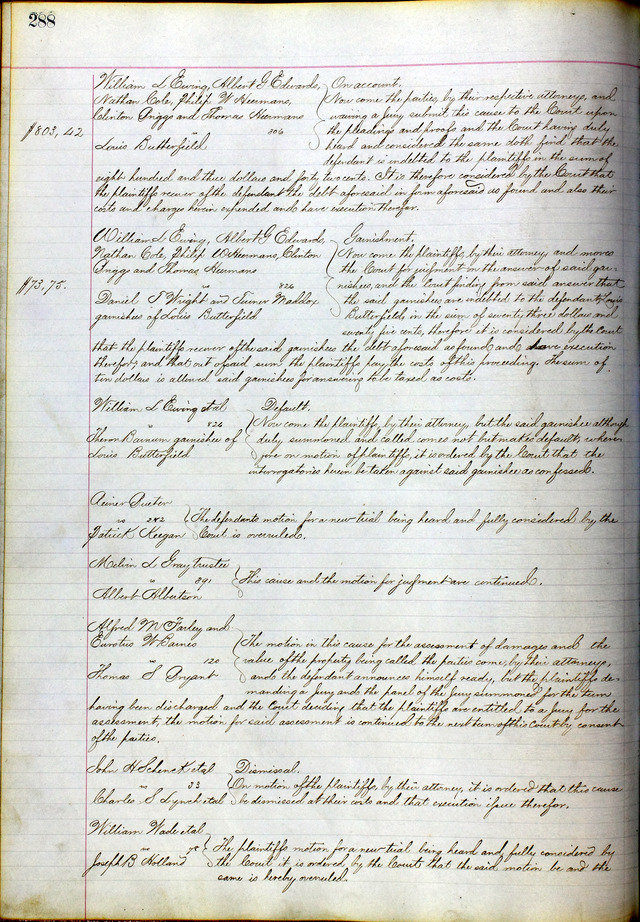 288
William L Ewing, Albert G Edwards, On account.
Nathan Cole, Philip W Heermans, Now come the parties by their respective attorneys, and
Clinton Briggs and Thomas Heermans waiving a jury submit this cause to the Court upon
$803,42 vs 306 the pleadings and proofs and the Court having duly
Louis Butterfield heard and considered the same doth find that the
defendant is indebted to the plaintiffs in the sum of
eight hundred and three dollars and forty two cents. It is therefore considered by the Court that
the plaintiffs recover of the defendant the debt aforesaid in form aforesaid as found and also their
costs and charges herein expended and have execution therefor.
William L Ewing, Albert G Edwards, Garnishment.
Nathan Cole, Philip W Heermans, Clinton Now come the plaintiffs, by their attorney, and moves
Briggs and Thomas Heermans the Court for judgment on the answer of said gar-
$73,75. vs 824 nishees, and the Court finding from said answer that
Daniel T Wright and Turner Maddox the said garnishees are indebted to the defendant, Louis
garnishees of Louis Butterfield Butterfield, in the sum of seventy three dollars and
seventy five cents, therefore it is considered by the Court
that the plaintiffs recover of the said garnishees the debt aforesaid as found and have execution
therefor, and that out of said sum the plaintiffs pay the costs of this proceeding. The sum of
ten dollars is allowed said garnishees for answering to be taxed as costs.
William L Ewing et al Default.
vs 824 Now come the plaintiffs, by their attorney, but the said garnishee although
Theron Barnum garnishee of duly summoned and called comes not but makes default, where-
Louis Butterfield fore on motion of plaintiffs, it is ordered by the Court that the
interrogatories herein be taken against said garnishee as confessed.
vs 282 The defendants motion for a new trial being heard and fully considered by the
Patrick Keegan Court is overruled.
Melvin L Gray trustee
vs 891 This cause and the motion for judgment are continued.
Albert Albertson
Alfred M Farley and
Eurotus W Barnes The motion in this cause for the assessment of damages and the
vs 120 value of the property being called the parties come, by their attorneys,
Thomas S Bryant and the defendant announces himself ready, but the plaintiffs de-
manding a Jury and the panel of the Jury summoned for the term
having been discharged and the Court deciding that the plaintiffs are entitled to a Jury for the
assessment, the motion for said assessment is continued to the next term of this Court by consent
of the parties.
John H Schenck et al Dismissal.
vs 33 On motion of the plaintiffs, by their attorney, it is ordered that this cause
Charles S Lynch et al be dismissed at their costs and that execution issue therefor.
William Wade et al
vs The plaintiffs motion for a new trial being heard and fully considered by
Joseph B Holland the Court it is ordered by the Court that the said motion be and the
same is hereby overruled.